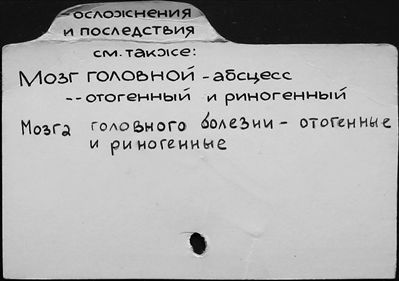 -осложнения
и последствия
см. также:
Мозг головной - абсцесс
--отогенный и риногенный
Мозга головного болезни - отогенные
и риногенные